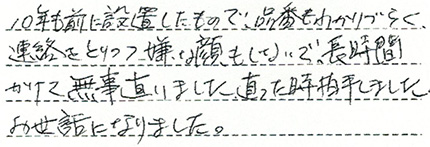 10年も前に設置したもので、品番もわかりづらく、
連絡をとりつつ嫌な顔もしないで、長時間
かけて無事直りました。直った時拍手しました。
お世話になりました。